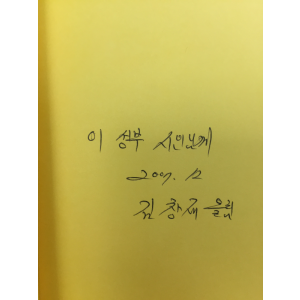 이 성부 시인님께
2007. 12
김 창 재 올림